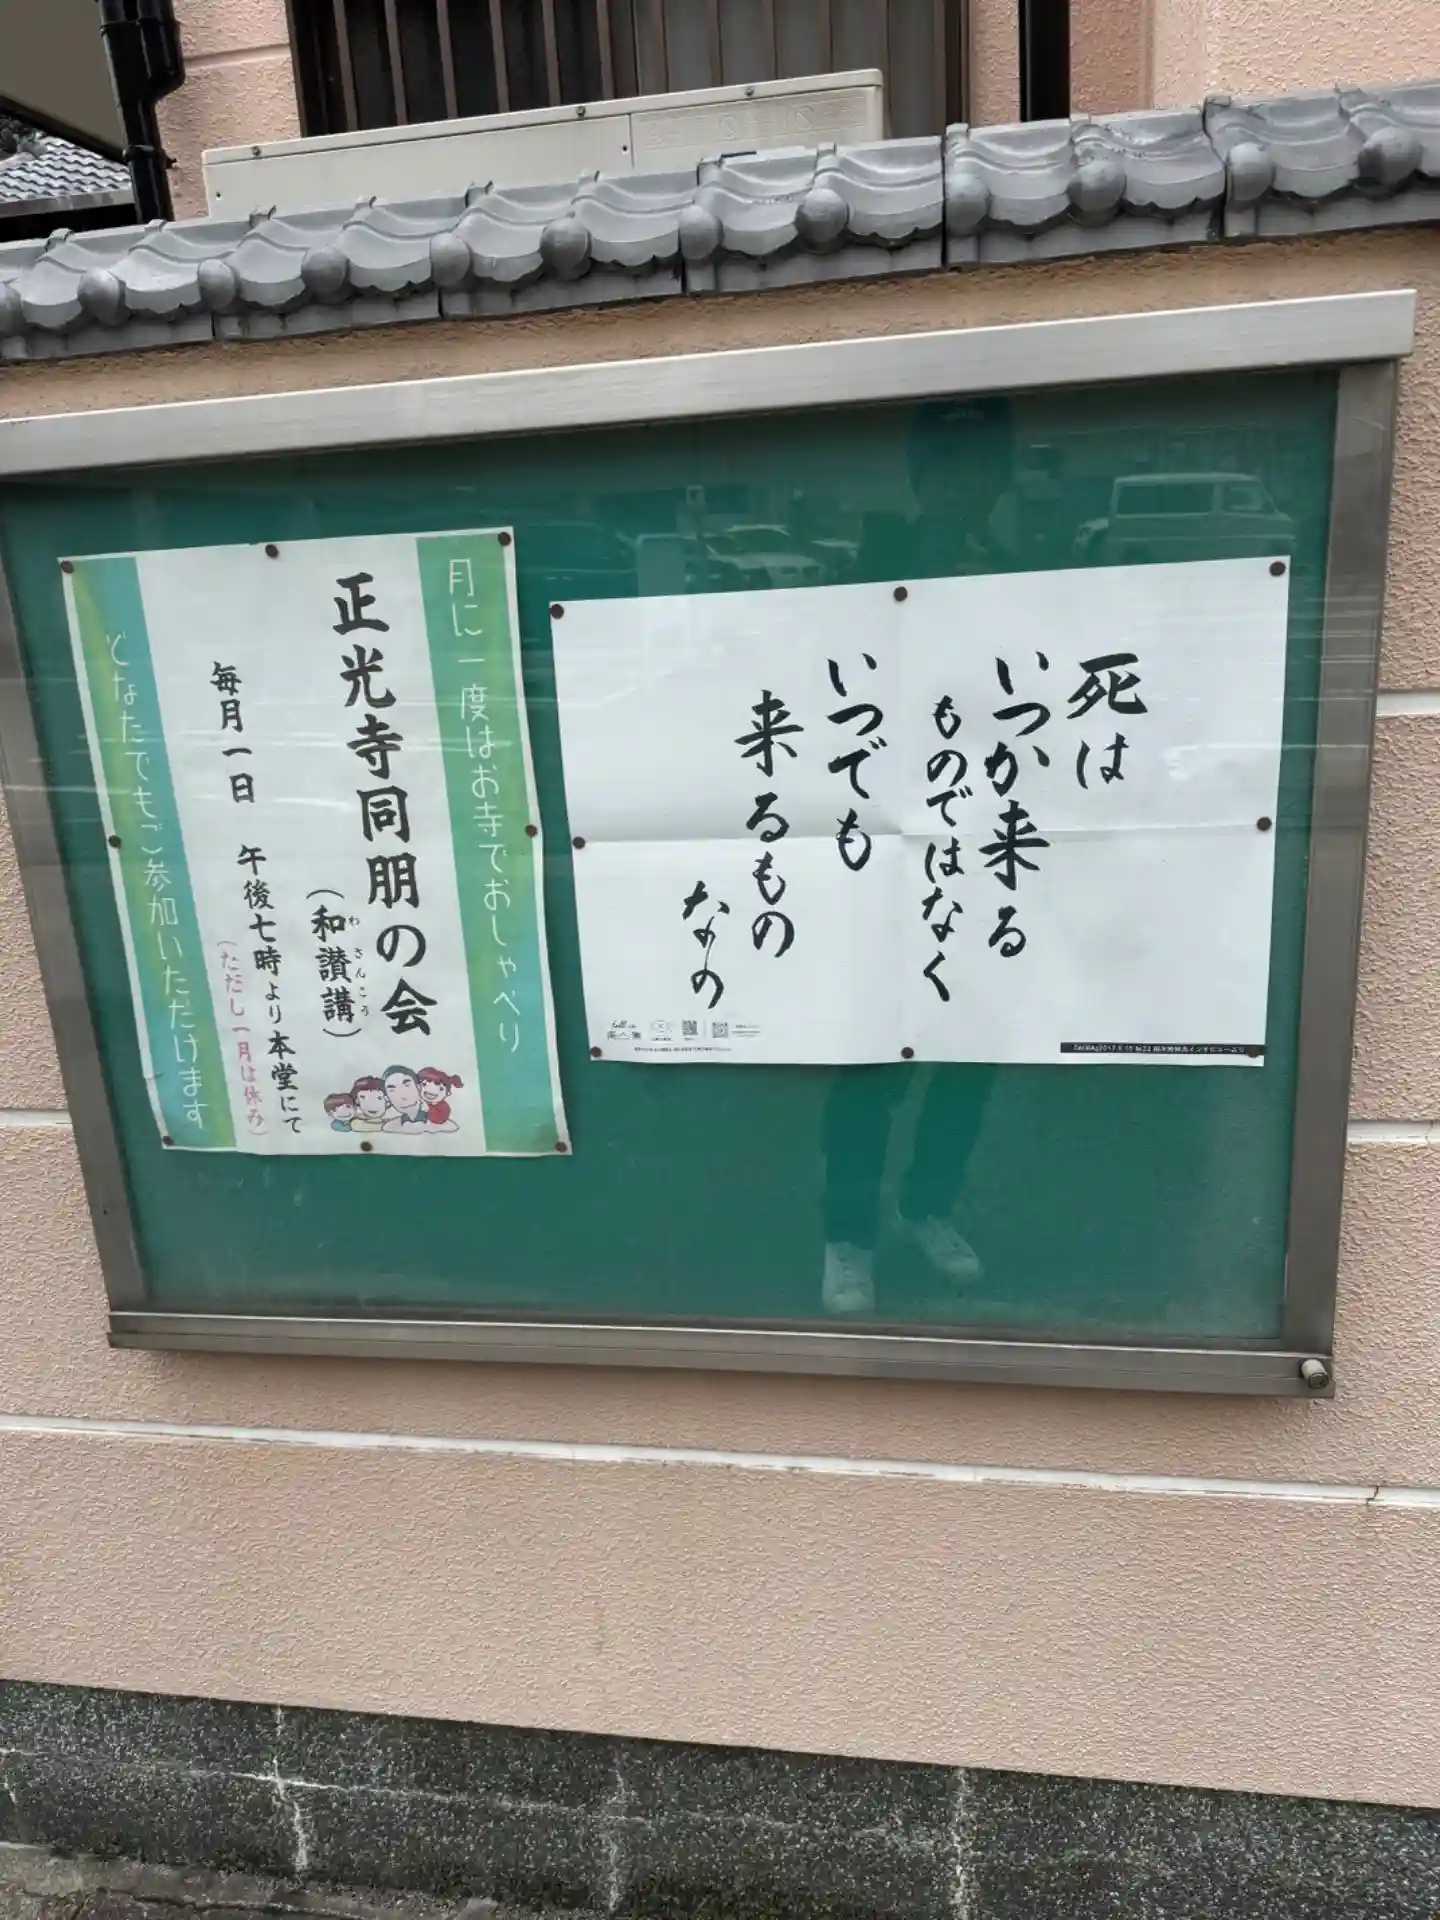 死は
いつか来る
ものではなく
いつでも
来るもの
なの
月に一度はお寺でおしゃべり
正光寺同朋の会
(和讃講)
わさんこう
毎月一日 午後七時より本堂にて
(ただし一月は休み)
どなたでもご参加いただけます